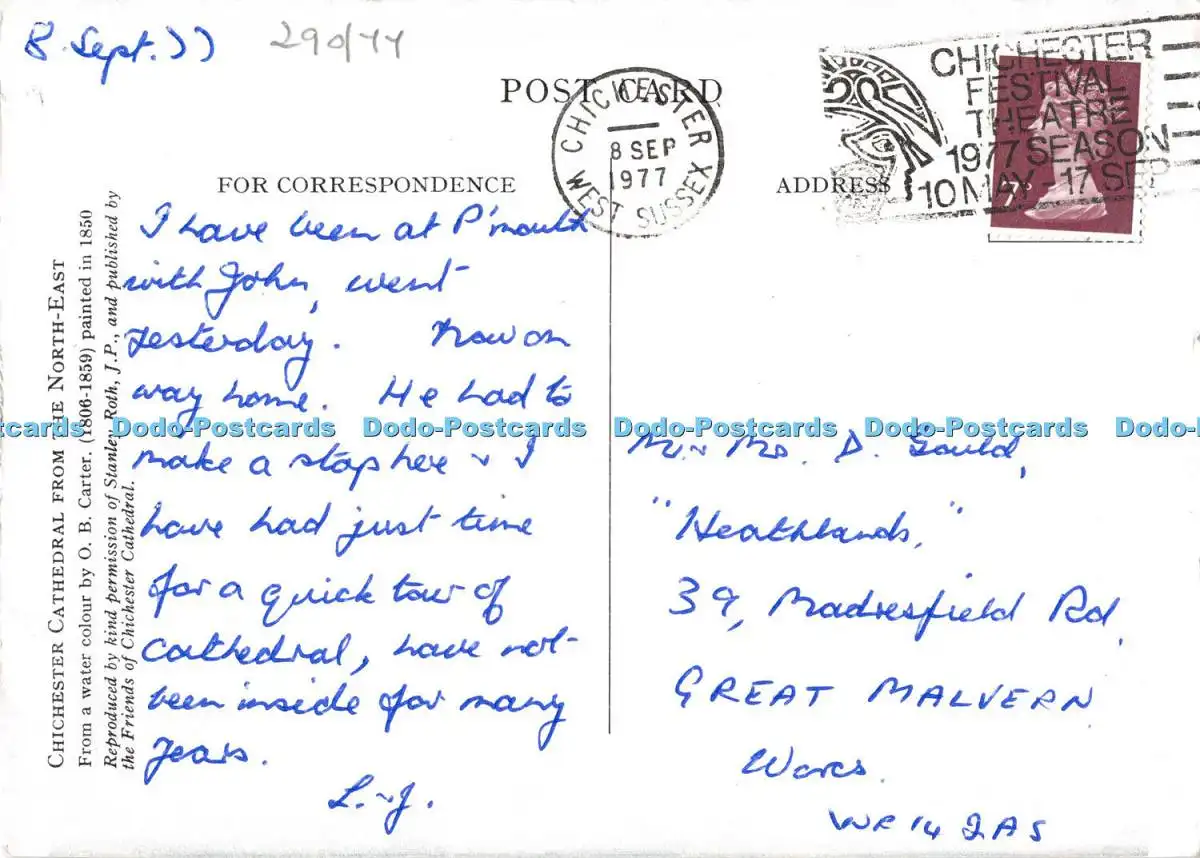 8. Sept. 77
290/77
POST CARD
CHICHESTER
8 SEP
1977
WEST SUSSEX
CHICHESTER
FESTIVAL
THEATRE
1977 SEASON
10 MAY - 17 SEP
7P
FOR CORRESPONDENCE
ADDRESS
CHICHESTER CATHEDRAL FROM THE NORTH-EAST
From a water colour by O. B. Carter, (1806-1859) painted in 1850
Reproduced by kind permission of Stanley Roth, J.P., and published by
the Friends of Chichester Cathedral.
I have been at P'mouth
with John, went
yesterday. Now on
way home. He had to
make a stop here & I
have had just time
for a quick tour of
Cathedral, have not
been inside for many
years.
L. & J.
Mr & Mrs. D. Gould,
"Heathlands,"
39, Madresfield Rd,
GREAT MALVERN
Worcs.
WR14 2AS
Dodo-Postcards Dodo-Postcards Dodo-Postcards Dodo-Postcards